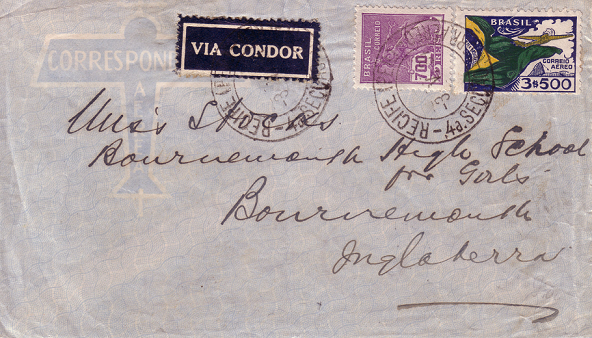 VIA CONDOR
BRASIL CORREIO
700 REIS
BRASIL
CORREIO AEREO
3$500
CORRESPON
AEREA
RECIFE
4ª SEC
RECIFE
4ª SEC
Miss
Bournemouth High School
for Girls
Bournemouth
Inglaterra